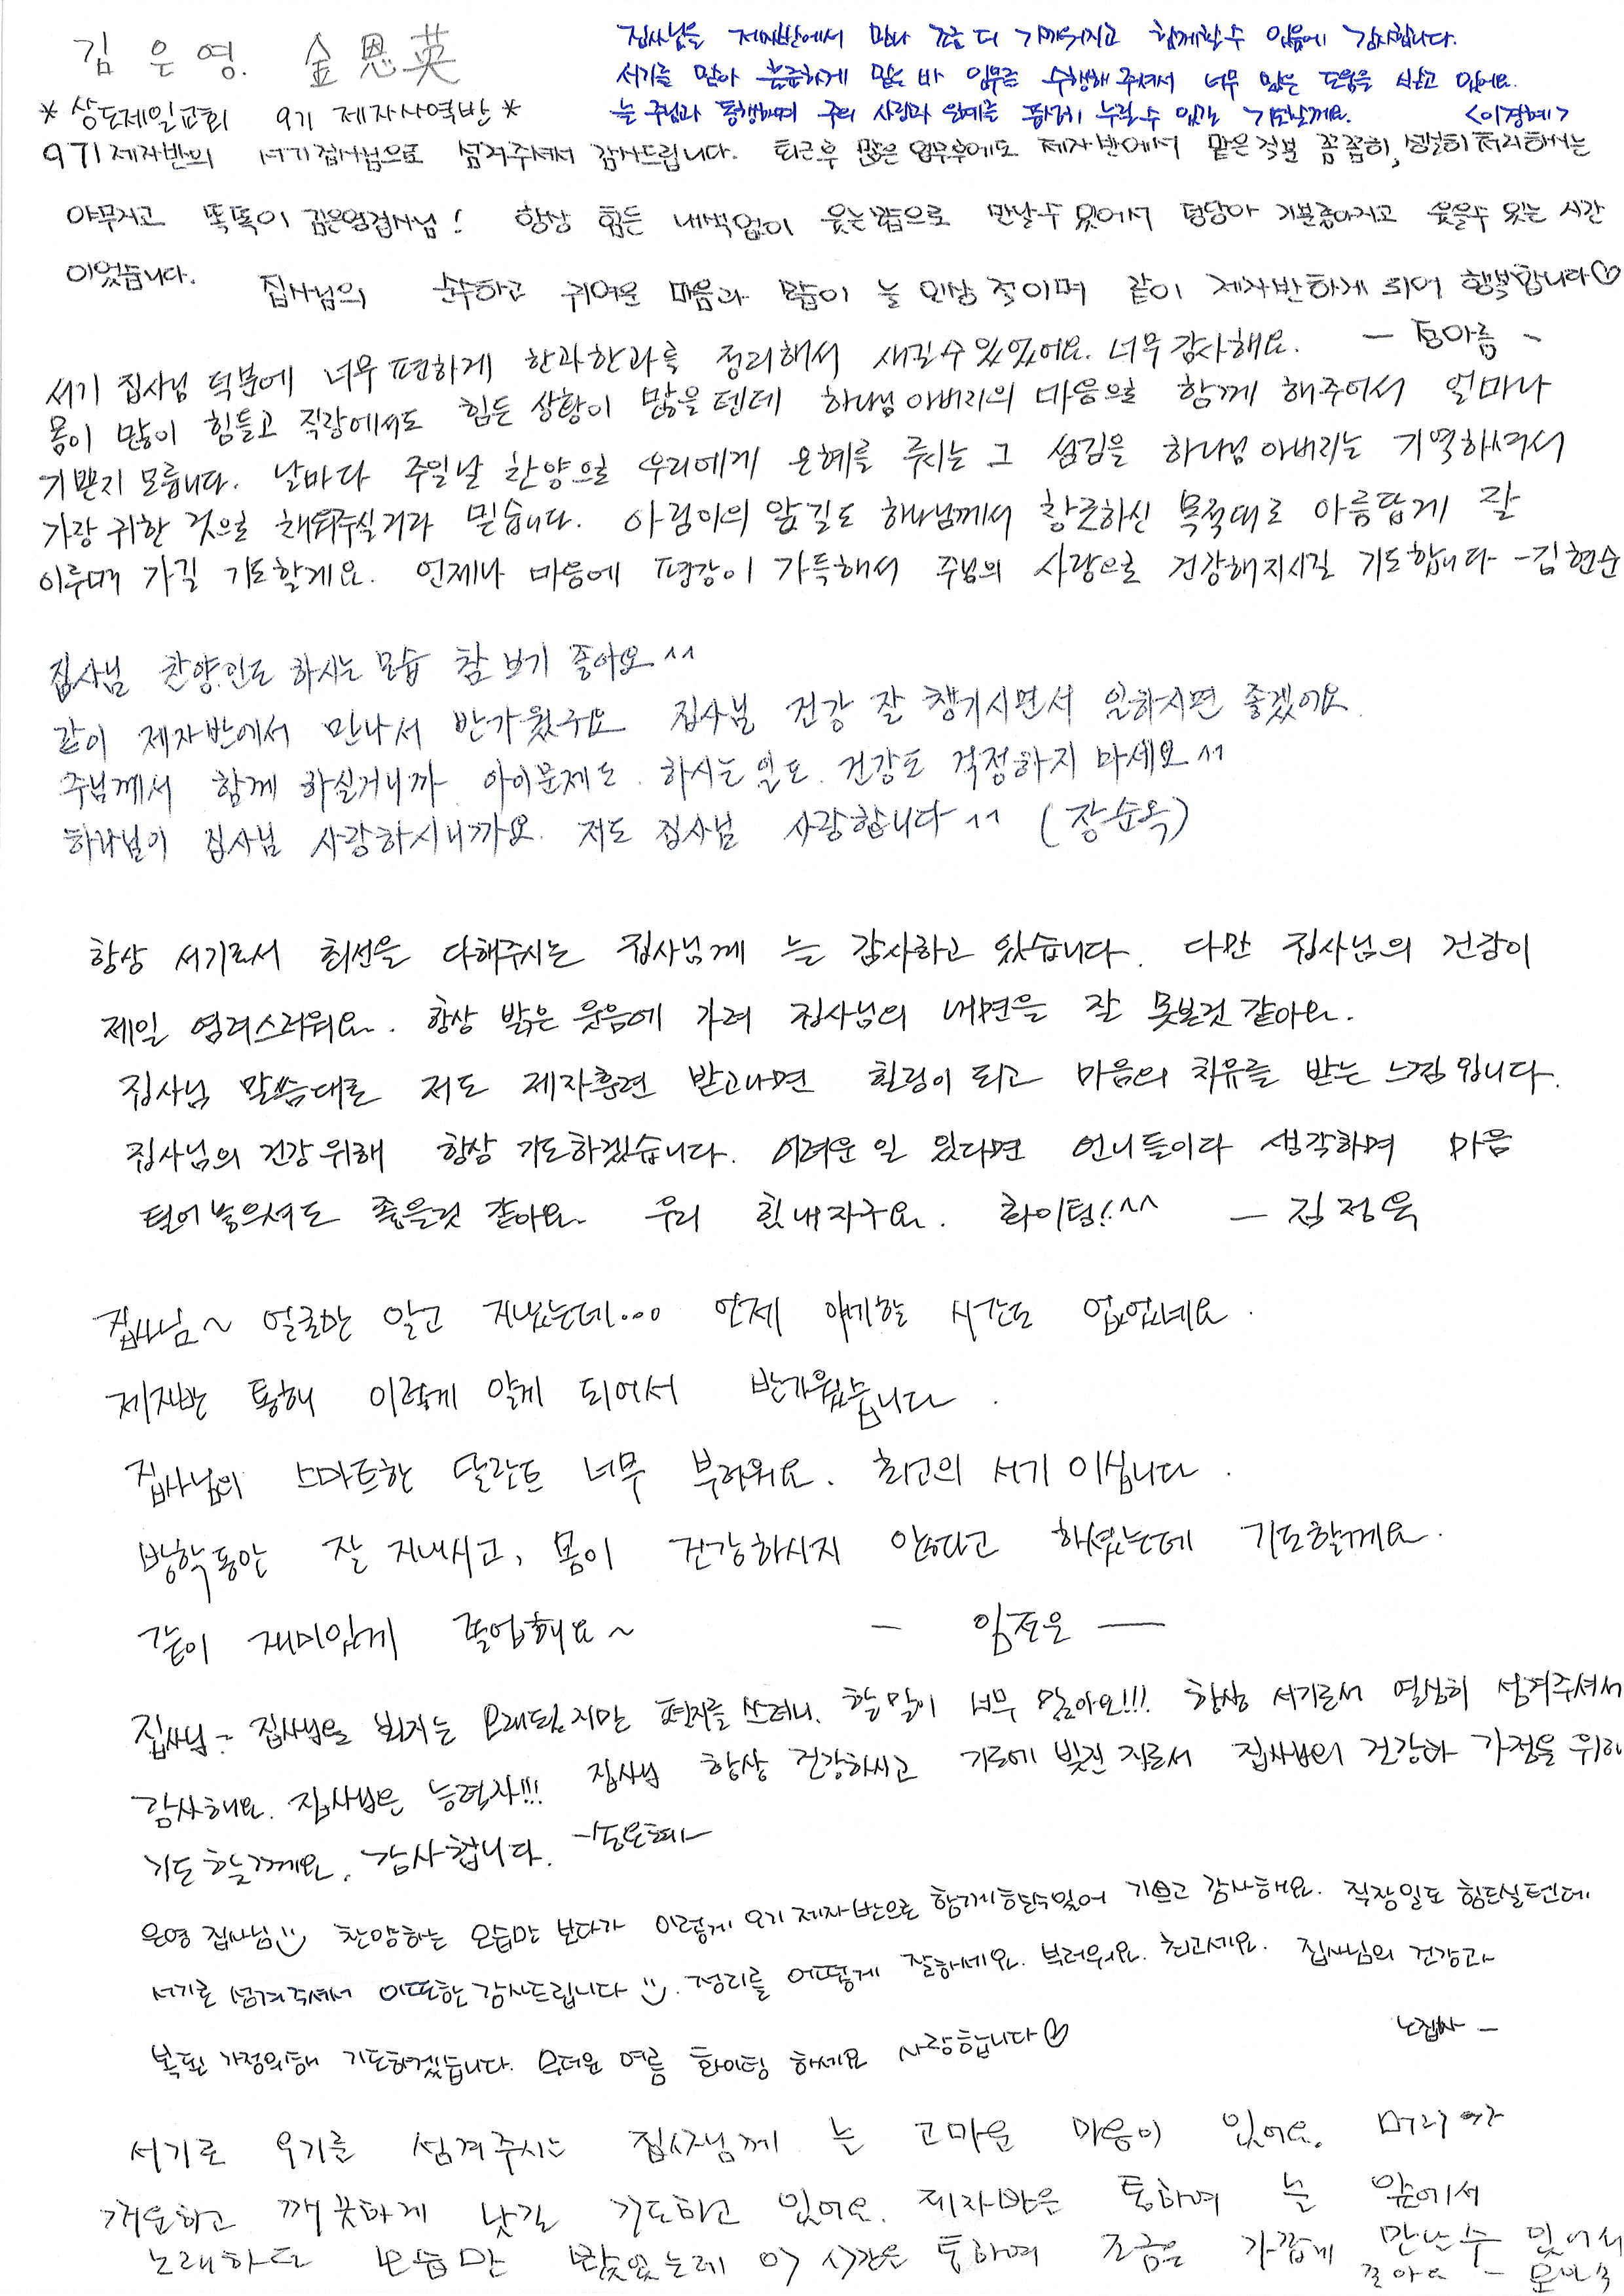 김 은 영. 金恩英
집사님을 제자반에서 만나 조금 더 가까워지고 함께할수 있음에 감사합니다.
서기를 맡아 훌륭하게 맡은 바 임무를 수행해 주셔서 너무 많은 도움을 받고 있어요.
늘 주님과 동행하며 주의 사랑과 은혜를 풍성히 누릴수 있길 기도할게요. <이정혜>
* 상도제일교회 9기 제자사역반 *
9기제자반의 서기집사님으로 섬겨주셔서 감사드립니다. 퇴근후 많은 업무후에도 제자반에서 맡은직분 꼼꼼히, 성실히 처리하시는
야무지고 똑똑이 김은영집사님! 항상 힘든 내색없이 웃는모습으로 만날수 있어서 덩달아 기분좋아지고 웃을수 있는 시간
이었습니다. 집사님의 순수하고 귀여운 마음과 모습이 늘 인상적이며 같이 제자반하게 되어 행복합니다♡
서기 집사님 덕분에 너무 편하게 한과한과를 정리해서 새길수있었어요. 너무감사해요. - 정아름 -
몸이 많이 힘들고 직장에서도 힘든 상황이 많을텐데 하나님아버지의 마음으로 함께 해주어서 얼마나
기쁜지 모릅니다. 날마다 주일날 찬양으로 우리에게 은혜를 주시는 그 섬김을 하나님 아버지는 기억하셔서
가장 귀한 것으로 채워주실거라 믿습니다. 아림이의 앞길도 하나님께서 창조하신 목적대로 아름답게 잘
이루며 가길 기도할게요. 언제나 마음에 평강이 가득해서 주님의 사랑으로 건강해지시길 기도합니다 - 김현순
집사님 찬양인도 하시는 모습 참 보기 좋아요^^
같이 제자반에서 만나서 반가웠구요 집사님 건강 잘 챙기시면서 일하시면 좋겠어요.
주님께서 함께 하실거니까 아이문제도. 하시는 일도. 건강도 걱정하지 마세요^^
하나님이 집사님 사랑하시니까요. 저도 집사님 사랑합니다^^ (장순옥)
항상 서기로서 최선을 다해주시는 집사님께 늘 감사하고 있습니다. 다만 집사님의 건강이
제일 염려스러워요. 항상 밝은 웃음에 가려 집사님의 내면을 잘 못본것 같아요.
집사님 말씀대로 저도 제자훈련 받고나면 힐링이 되고 마음의 치유를 받는 느낌입니다.
집사님의 건강위해 항상 기도하겠습니다. 어려운 일 있다면 언니들이라 생각하며 마음
털어놓으셔도 좋을것 같아요. 우리 힘내자구요. 화이팅!^^ - 김정옥
집사님~ 얼굴만 알고 지냈는데... 언제 얘기할 시간도 없었네요.
제자반 통해 이렇게 알게 되어서 반가웠습니다.
집사님의 스마트한 달란트 너무 부러워요. 최고의 서기 이십니다.
방학동안 잘 지내시고, 몸이 건강하시지 않다고 하셨는데 기도할께요.
같이 재미있게 졸업해요~ - 임정은 -
집사님~ 집사님을 뵌지는 오래됐지만 편지를 쓰려니, 할말이 너무 많아요!!! 항상 서기로서 열심히 섬겨주셔서
감사해요. 집사님은 능력자!!! 집사님 항상 건강하시고 기도에 빚진 자로서 집사님의 건강과 가정을 위해
기도할께요. 감사합니다. -송은혜-
은영 집사님 찬양하는 모습만 보다가 이렇게 9기 제자반으로 함께할수있어 기쁘고 감사해요. 직장일도 힘드실텐데
서기로 섬겨주셔서 이또한 감사드립니다. 정리를 어떻게 잘하세요. 부러워요. 최고세요. 집사님의 건강과
복된 가정위해 기도하겠습니다. 무더운 여름 화이팅 하세요 사랑합니다♡ 노집사 -
서기로 9기를 섬겨주시는 집사님께 늘 고마운 마음이 있어요. 머리가
개운하고 깨끗하게 낫길 기도하고 있어요. 제자반을 통하여 늘 앞에서
노래하는 모습만 봤었는데 이 시간을 통하여 조금은 가깝게 만날수 있어서
좋아요 -